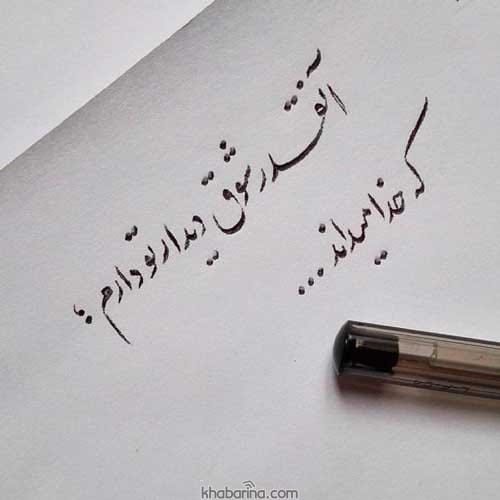 آنقدر شوق دیدار تو دارم؛
که خدا میداند...
khabarina.com